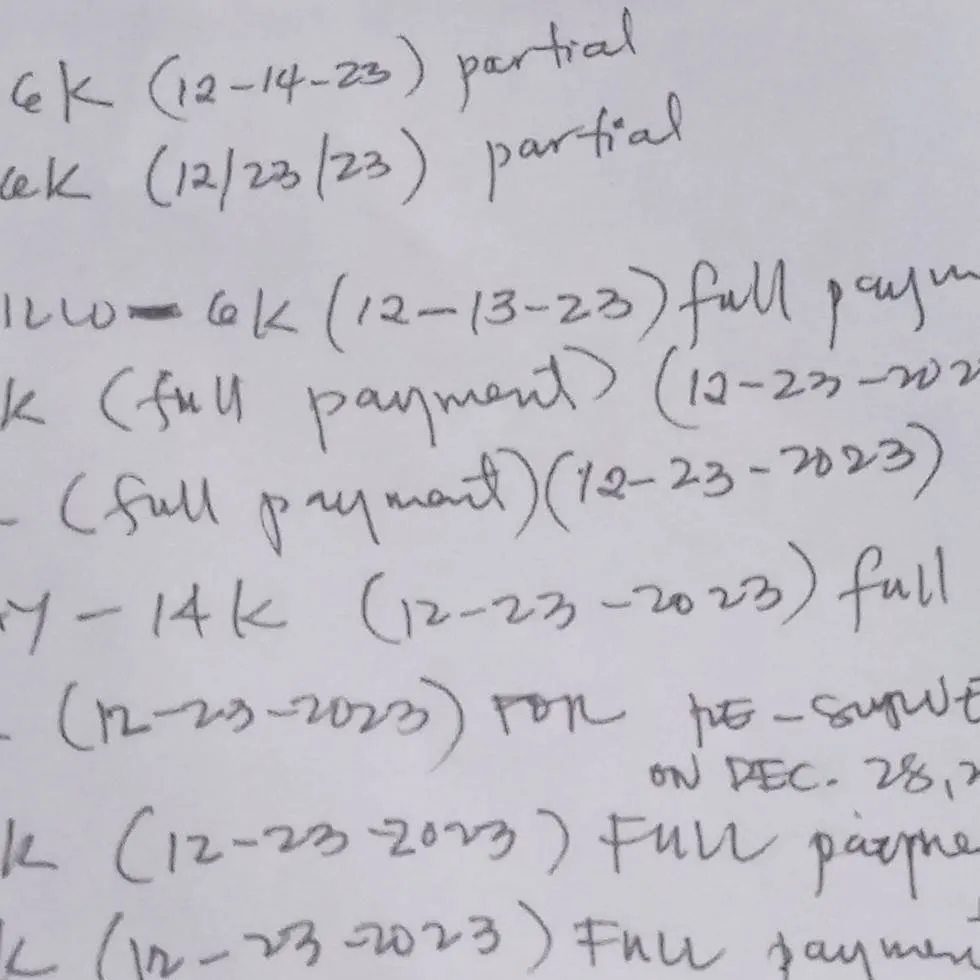 6K (12-14-23) partial
6K (12/23/23) partial
ILLO - 6K (12-13-23) full paym
K (full payment) (12-23-202
- (full payment) (12-23-2023)
Y - 14K (12-23-2023) full
- (12-23-2023) FOR RE-SURVE
ON DEC. 28, 2
K (12-23-2023) FULL payme
K (12-23-2023) FULL paymen